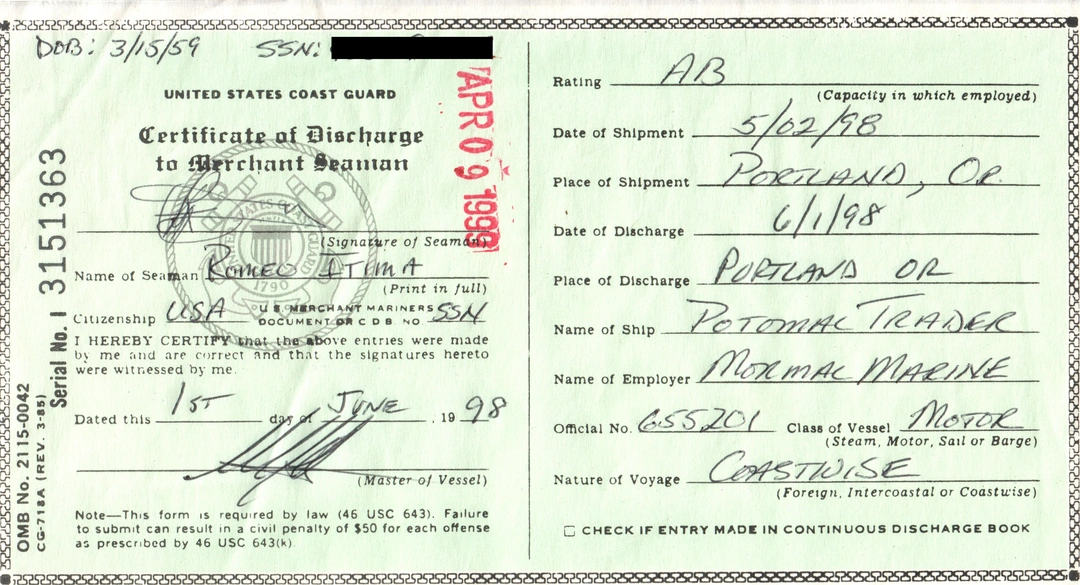 DOB: 3/15/59 SSN:
UNITED STATES COAST GUARD
Certificate of Discharge
to Merchant Seaman
APR 09 1999
(Signature of Seaman)
Name of Seaman ROMEO ITIMA
(Print in full)
Citizenship USA U S MERCHANT MARINERS DOCUMENT OR C D B NO SSN
I HEREBY CERTIFY that the above entries were made
by me and are correct and that the signatures hereto
were witnessed by me.
Dated this 1ST day of JUNE, 19 98
(Master of Vessel)
Note—This form is required by law (46 USC 643). Failure
to submit can result in a civil penalty of $50 for each offense
as prescribed by 46 USC 643(k).
Serial No. I 3151363
OMB No. 2115-0042
CG-718A (REV. 3-85)
1790
Rating AB
(Capacity in which employed)
Date of Shipment 5/02/98
Place of Shipment PORTLAND, OR.
Date of Discharge 6/1/98
Place of Discharge PORTLAND OR
Name of Ship POTOMAC TRADER
Name of Employer MORMAC MARINE
Official No. 655201 Class of Vessel MOTOR
(Steam, Motor, Sail or Barge)
Nature of Voyage COASTWISE
(Foreign, Intercoastal or Coastwise)
☐ CHECK IF ENTRY MADE IN CONTINUOUS DISCHARGE BOOK